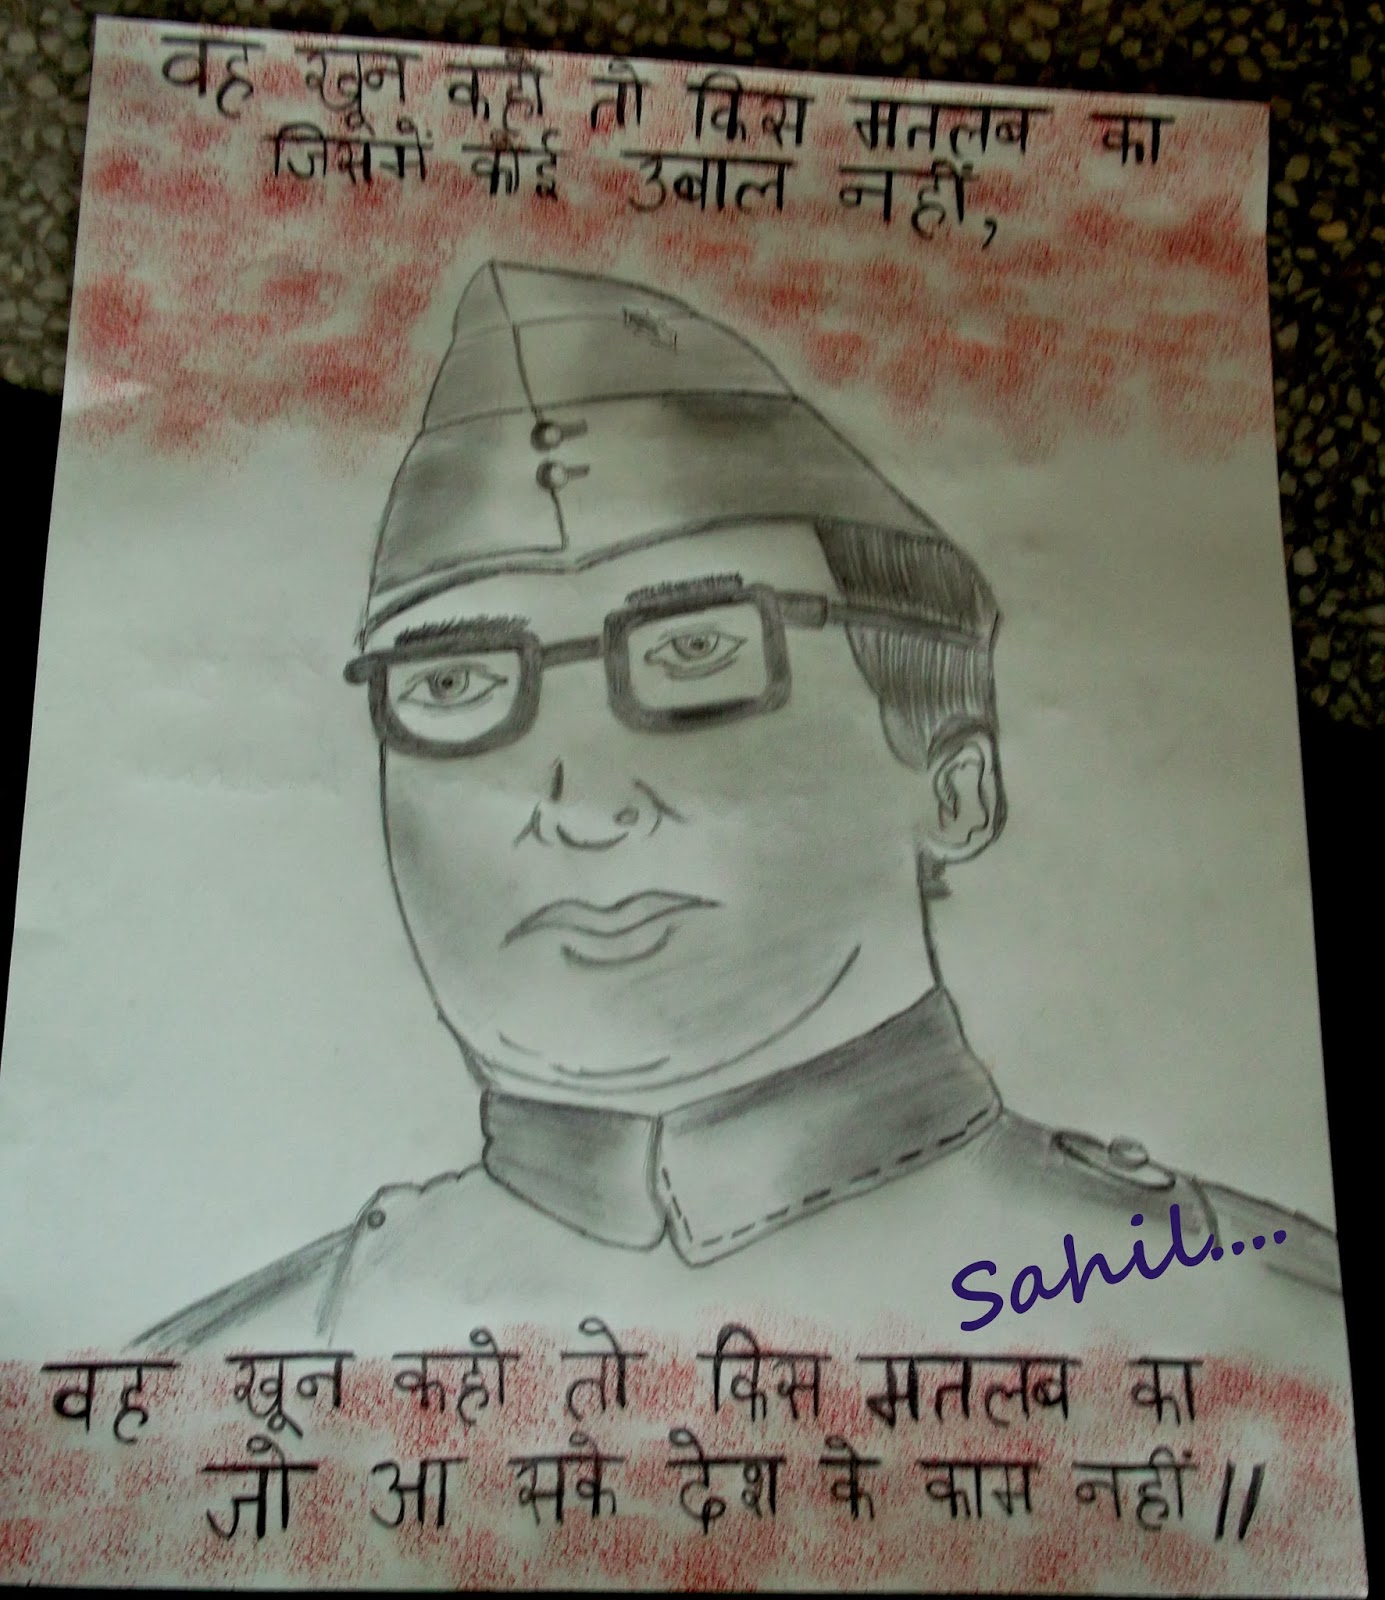 वह खून कहो तो किस मतलब का
जिसमें कोई उबाल नहीं,
Sahil....
वह खून कहो तो किस मतलब का
जो आ सके देश के काम नहीं //